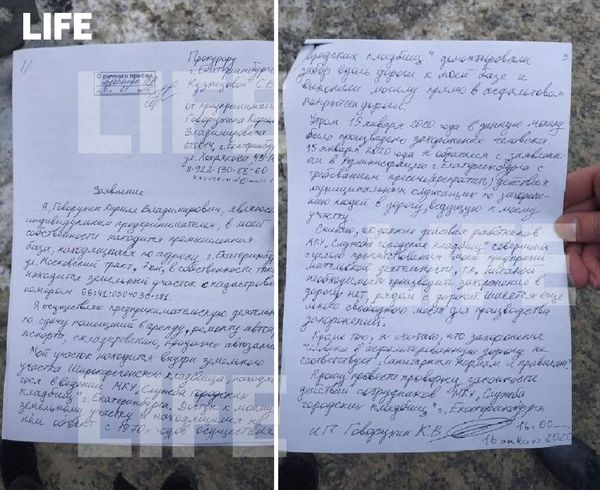 LIFE
1)
Прокурору
г. Екатеринбурга
Кузнецовой С.В.
от предпринимателя
Говорухина Кирилла
Владимировича
г. Екатеринбург
8-922-130-66-60
Заявление
Я, Говорухин Кирилл Владимирович, являюсь
индивидуальным предпринимателем, в моей
собственности находится промышленная
база, находящаяся по адресу г. Екатеринбург
ул. Московский тракт, 7 км, в собственности также
находится земельный участок с кадастровым
номером
Я осуществляю предпринимательскую деятельность
по сдаче помещений в аренду, ремонту автотр
анспорта, складированию, продаже автозапчастей
Мой участок находится внутри земельного
участка Широкореченского кладбища, находя
гося в ведении МКУ "Служба городских
кладбищ" г. Екатеринбурга. Доступ к моему
земельному участку и находящимся на
нем объект с 1970 годов осуществлялся
3
городских кладбищ" демонтировали
забор вдоль дороги к моей базе и
выкопали могилу прямо в асфальтовом
покрытии дороги.
Утром 15 января 2020 года в данную могилу
было произведено захоронение человека
15 января 2020 года я обратился с заявлени
ем в Администрацию г. Екатеринбурга с
требованием пресечь(прекратить) действия
муниципальных служащих по захороне
нию людей в дорогу, ведущую к моему
участку.
Считаю, что данные действия работников
МКУ "Служба городских кладбищ" совершены
с целью препятствования моей предприни
мательской деятельности, т.к. никакой
необходимости производить захоронение в
дорогу нет, рядом с дорогой имеется еще
много свободного места для производства
захоронений.
Кроме того, я считаю, что захоронение
человека в асфальтированную дорогу не
соответствует "Санитарным нормам и правилам".
Прошу провести проверку законности
действий сотрудников МКУ "Служба
городских кладбищ" г. Екатеринбурга
ИП Говорухин К.В.
16:00
16 января 2020